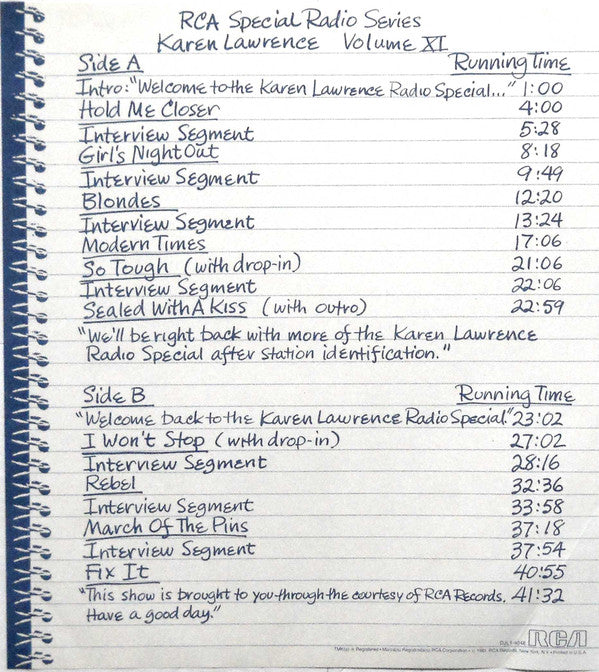 RCA Special Radio Series
Karen Lawrence Volume XI
Side A Running Time
Intro: "Welcome to the Karen Lawrence Radio Special..." 1:00
Hold Me Closer 4:00
Interview Segment 5:28
Girl's Night Out 8:18
Interview Segment 9:49
Blondes 12:20
Interview Segment 13:24
Modern Times 17:06
So Tough (with drop-in) 21:06
Interview Segment 22:06
Sealed With A Kiss (with outro) 22:59
"We'll be right back with more of the Karen Lawrence
Radio Special after station identification."
Side B Running Time
"Welcome back to the Karen Lawrence Radio Special" 23:02
I Won't Stop (with drop-in) 27:02
Interview Segment 28:16
Rebel 32:36
Interview Segment 33:58
March Of The Pins 37:18
Interview Segment 37:54
Fix It 40:55
"This show is brought to you through the courtesy of RCA Records. 41:32
Have a good day."
RCA
TMK(s) ® Registered • Marca(s) Registrada(s) RCA Corporation • © 1981, RCA Records, New York, N.Y. • Printed in U.S.A.